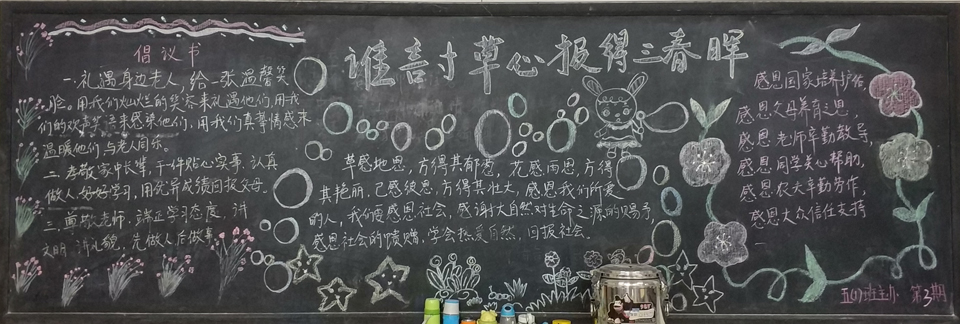 谁言寸草心报得三春晖
倡议书
一.礼遇身边老人,给一张温馨笑
脸。用我们灿烂的笑容来礼遇他们,用我
们的欢声笑语来感染他们,用我们真挚情感来
温暖他们与老人同乐。
二.孝敬家中长辈,干件贴心家事,认真
做人好好学习,用优异成绩回报父母。
三.尊敬老师,端正学习态度,讲
文明讲礼貌,先做人后做事
草感地恩,方得其郁葱,花感雨恩,方得
其艳丽,己感彼恩,方得其壮大,感恩我们所爱
的人,我们要感恩社会,感谢大自然对生命之源的赐予,
感恩社会的馈赠,学会热爱自然,回报社会。
感恩国家培养护佑,
感恩父母养育之恩,
感恩老师辛勤教导,
感恩同学关心帮助,
感恩农夫辛勤劳作,
感恩大众信任支持
五(1)班主办 第3期